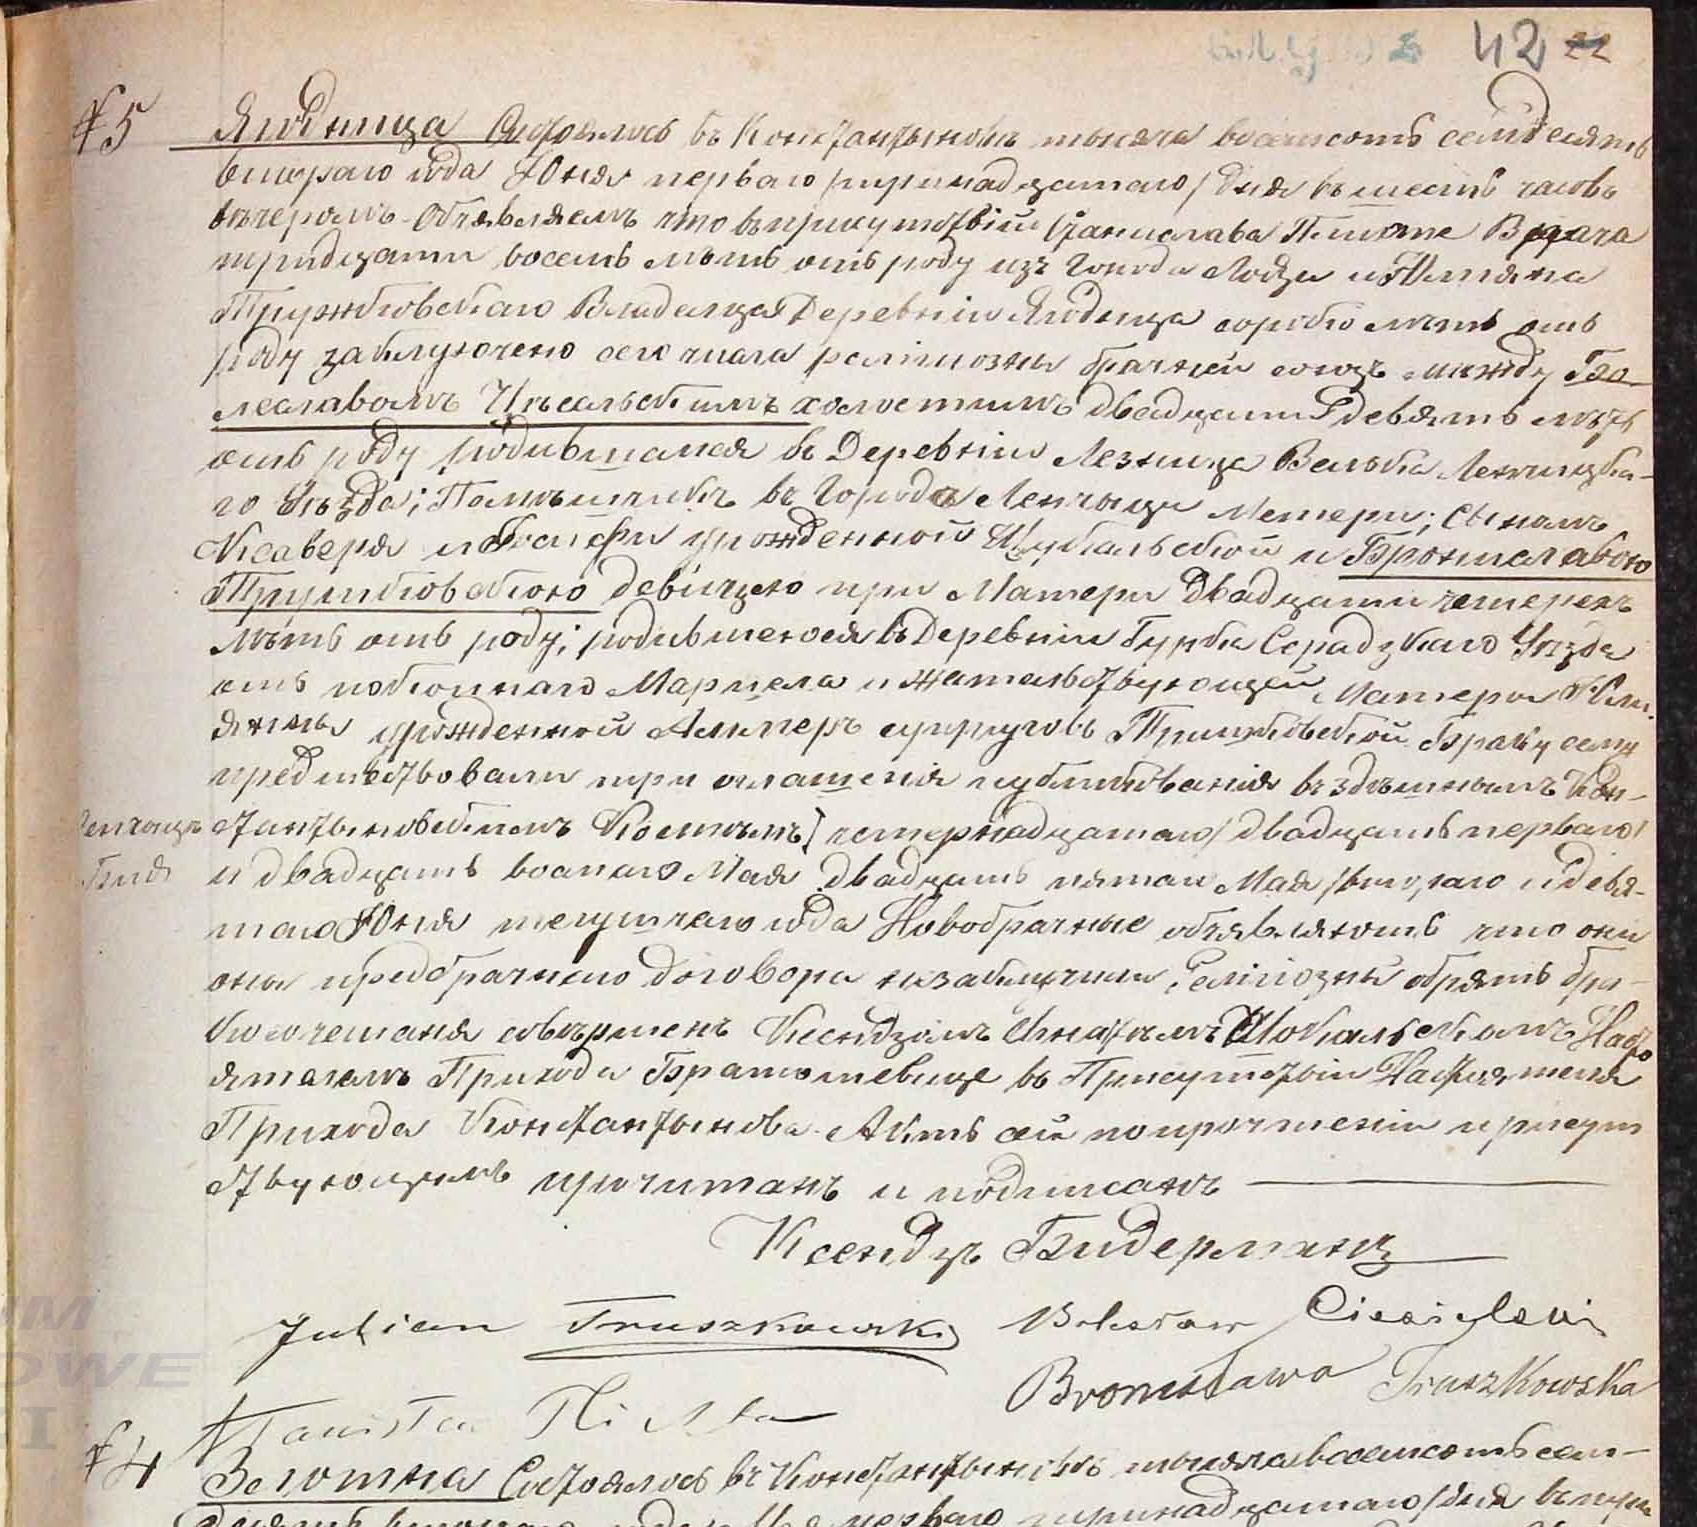 42 22
№5 Ягодница Состоялось въ Константыновѣ тысяча восемсотъ семдесятъ
втораго года Юня перваго /тринадцатаго/ дня въ шесть часовъ
вечеромъ Объявляемъ что въ присутствіи Станислава Врача
тридцати восемь лѣтъ отъ роду изъ Города Лодзи и Юліяна
Трушковскаго Владельца Деревни Ягодница сорокъ лѣтъ отъ
роду заключено сего числа религіозны брачный союзъ между Бо-
леславомъ Цѣсельскимъ холостымъ двадцати девять лѣтъ
отъ роду родившимся въ Деревни Лезница Велька Ленчицка-
го Уѣзда; въ Городѣ Ленчицы сыномъ
Ксаверя и Юзефы урожденной и Брониславою
Трушковскою девицею при Матери двадцати четерехъ
лѣтъ отъ роду; родившеюся въ Деревни Гурка Серадзкаго Уѣзда
отъ покойнаго Марцела и жительствующей Матери Юли-
янны урожденной супруговъ Трушковской Браку сему
предшествовали три оглашенія публикованія въ здѣшнымъ Кон-
стантыновскимъ Костелѣ четернадцатаго /двадцать перваго/
Ленчицѣ
и двадцать восмаго Мая двадцать пятаго Мая /втораго и девя-
таго Юня текущаго года Новобрачные объявляютъ что они
предбрачнаго договора незаключили, Религіозны обрядъ бра-
косочетаня совершенъ Ксендзомъ Насто-
ятелемъ Прихода Братошевице въ Присутствіи Настоятеля
Прихода Константынова. Актъ сей по прочтеніи присут
ствующимъ прочитанъ и подписанъ
Ксендзъ Бидерманъ
Julian Truszkowski Bolesław Ciesielski
Bronisława Truszkowska
Stanisław
№4 Злотна Состоялось въ Константыновѣ тысяча восемсотъ сем-
перваго /тринадцатаго/ дня